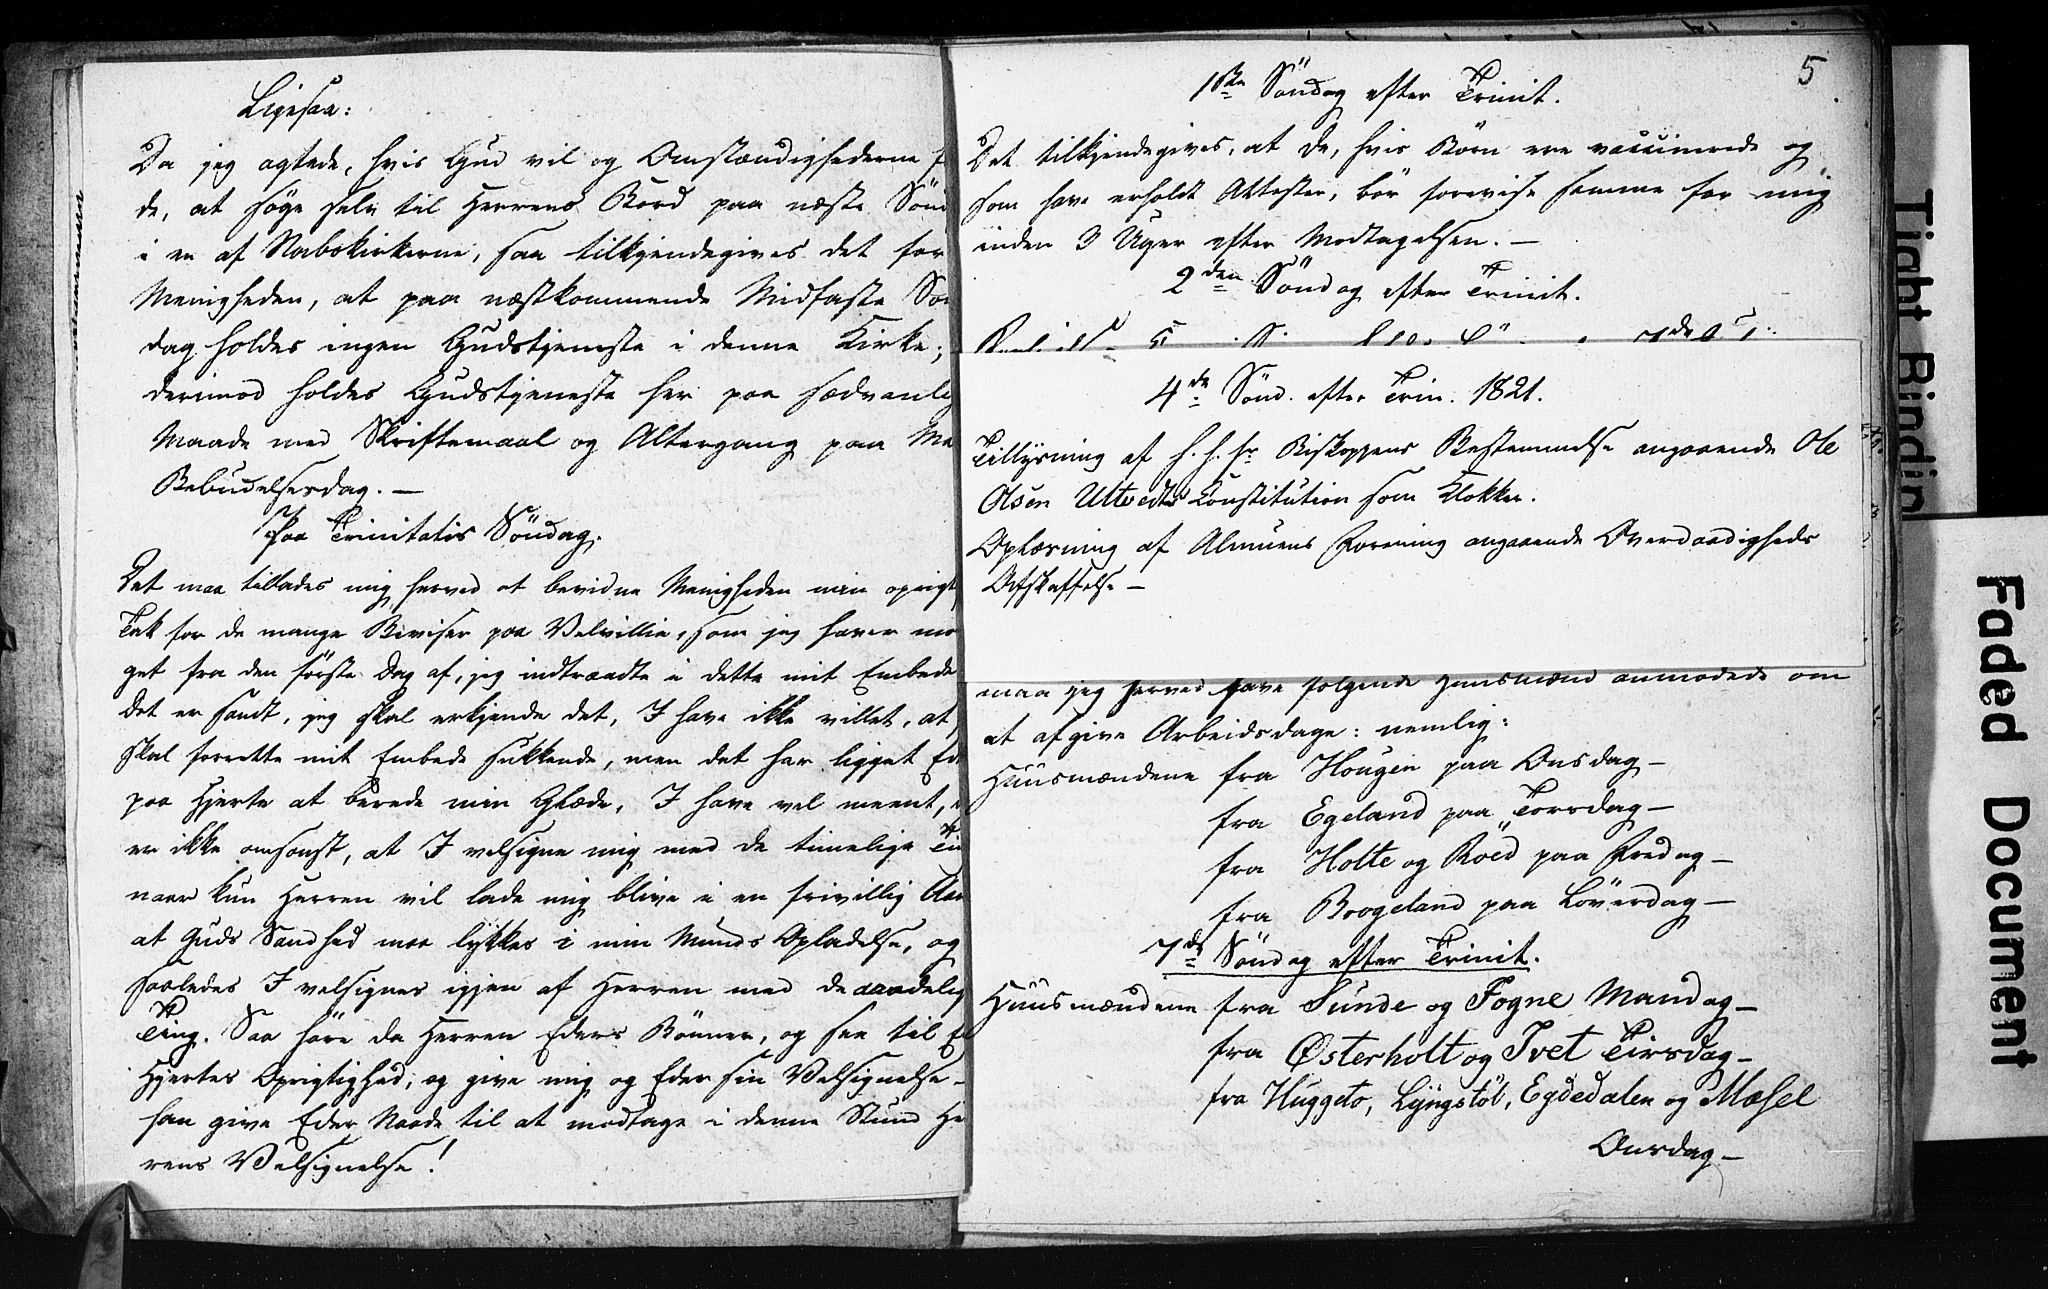 Ligesaa:
Da jeg agtede, hvis Gud vil og Omstændighederne
de, at søge selv til Herrens Bord paa næste Sönd
i en af Nabokirkerne, saa tilkjendegives det for
Menigheden, at paa næstkommende Midfaste Sön
dag holdes ingen Gudstjeneste i denne Kirke;
derimod holdes Gudstjeneste her paa sædvanlig
Maade med Skriftemaal og Altergang paa Ma
Bebudelsesdag. —
Paa Trinitatis Söndag.
Det maa tillades mig herved at bevidne Menigheden min oprigt
Tak for de mange Beviser paa Velvillie, som jeg haver mo
get fra den første Dag af, jeg indtraadte i dette mit Embede
Det er sandt, jeg skal erkjende det, I have ikke villet, at
skal forrette mit Embede sukkende, men det har ligget Ed
paa Hjerte at berede min Glæde, I have vel meent,
er ikke omsonst, at I velsigne mig med de timelige Tin
naar kun Herren vil lade mig blive i en frivillig Aan
at Guds Sandhed maa lykkes i min Munds Opladelse, og
saaledes I velsignes igjen af Herren med de aandelig
Ting. Saa høre da Herren Eders Bønner, og see til E
Hjertes Oprigtighed; og give mig og Eder sin Velsignelse –
han give Eder Naade til at modtage i denne Stund He
rens Velsignelse!
5
1ste Söndag efter Trinit.
Det tilkjendegives, at de, hvis Börn ere vaccinerede og
som have erholdt Attester, bör forevise samme for mig
inden 3 Uger efter Modtagelsen. —
2den Söndag efter Trinit.
4de Sönd. efter Trin. 1821.
Tillysning af H. H. Hr Biskoppens Bestemmelse angaaende Ole
Olsen Ultvedts Constitution som Klokker.
Oplæsning af Almuens Forening angaaende Overdaadigheds
Afskaffelse —
maa jeg herved have følgende Huusmænd anmodede om
at afgive Arbeidsdage: nemlig:
Huusmændene fra Hougen paa Onsdag —
fra Egeland paa Torsdag —
fra Holte og Roed paa Fredag —
fra Broogeland paa Löverdag —
7de Söndag efter Trinit.
Huusmændene fra Sunde og Fogne Mandag —
fra Østerholt og Ivet Tirsdag —
fra Huggeto, Lyngstöl, Egdedalen og Mæsel
Onsdag —
Tight Bindin
Faded Document